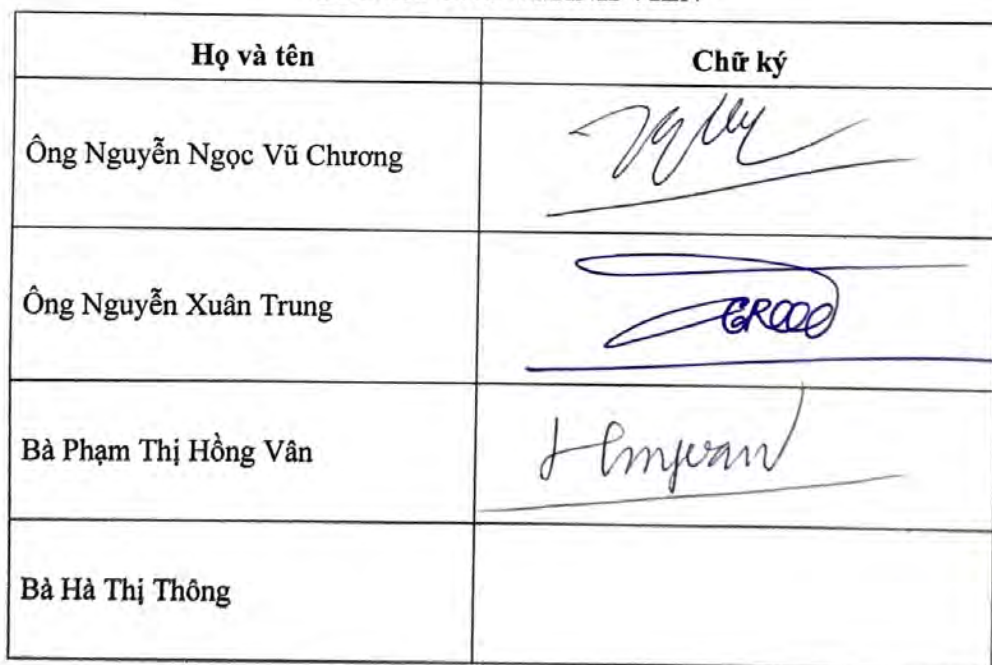 Họ và tên
Chữ ký
Ông Nguyễn Ngọc Vũ Chương
Ông Nguyễn Xuân Trung
Bà Phạm Thị Hồng Vân
Bà Hà Thị Thông